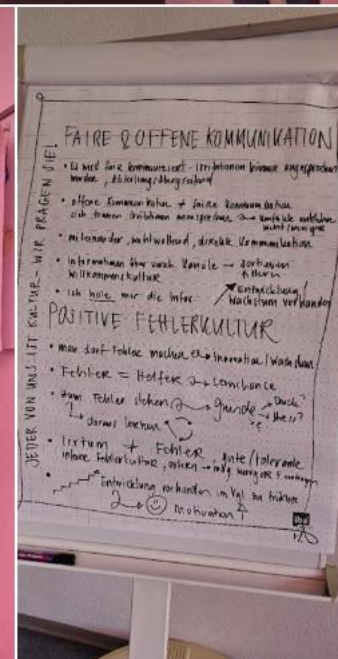 JEDER VON UNS IST KULTUR - WIR PRÄGEN SIE!
FAIRE & OFFENE KOMMUNIKATION
• Es wird fair kommuniziert - Irritationen können angesprochen
werden, Abteilungsübergreifend
• offene Kommunikation + faire Kommunikation
sich trauen Irritationen anzusprechen
• miteinander, wohlwollend, direkte Kommunikation
• Informationen über versch. Kanäle → sortieren
filtern
Willkommenskultur
Entwicklung/
Wachstum vorhanden
• Ich hole mir die Infos
POSITIVE FEHLERKULTUR
• man darf Fehler machen → Innovation/Wachstum
• Fehler = Helfer → Lernchance
• zum Fehler stehen → Gründe → Druck?
→ Stress?
→ daraus lernen
• Irrtum ≠ Fehler, gute/tolerante
interne Fehlerkultur,
• Entwicklung vorhanden im Vgl. zu früher
→ Motivation ↑